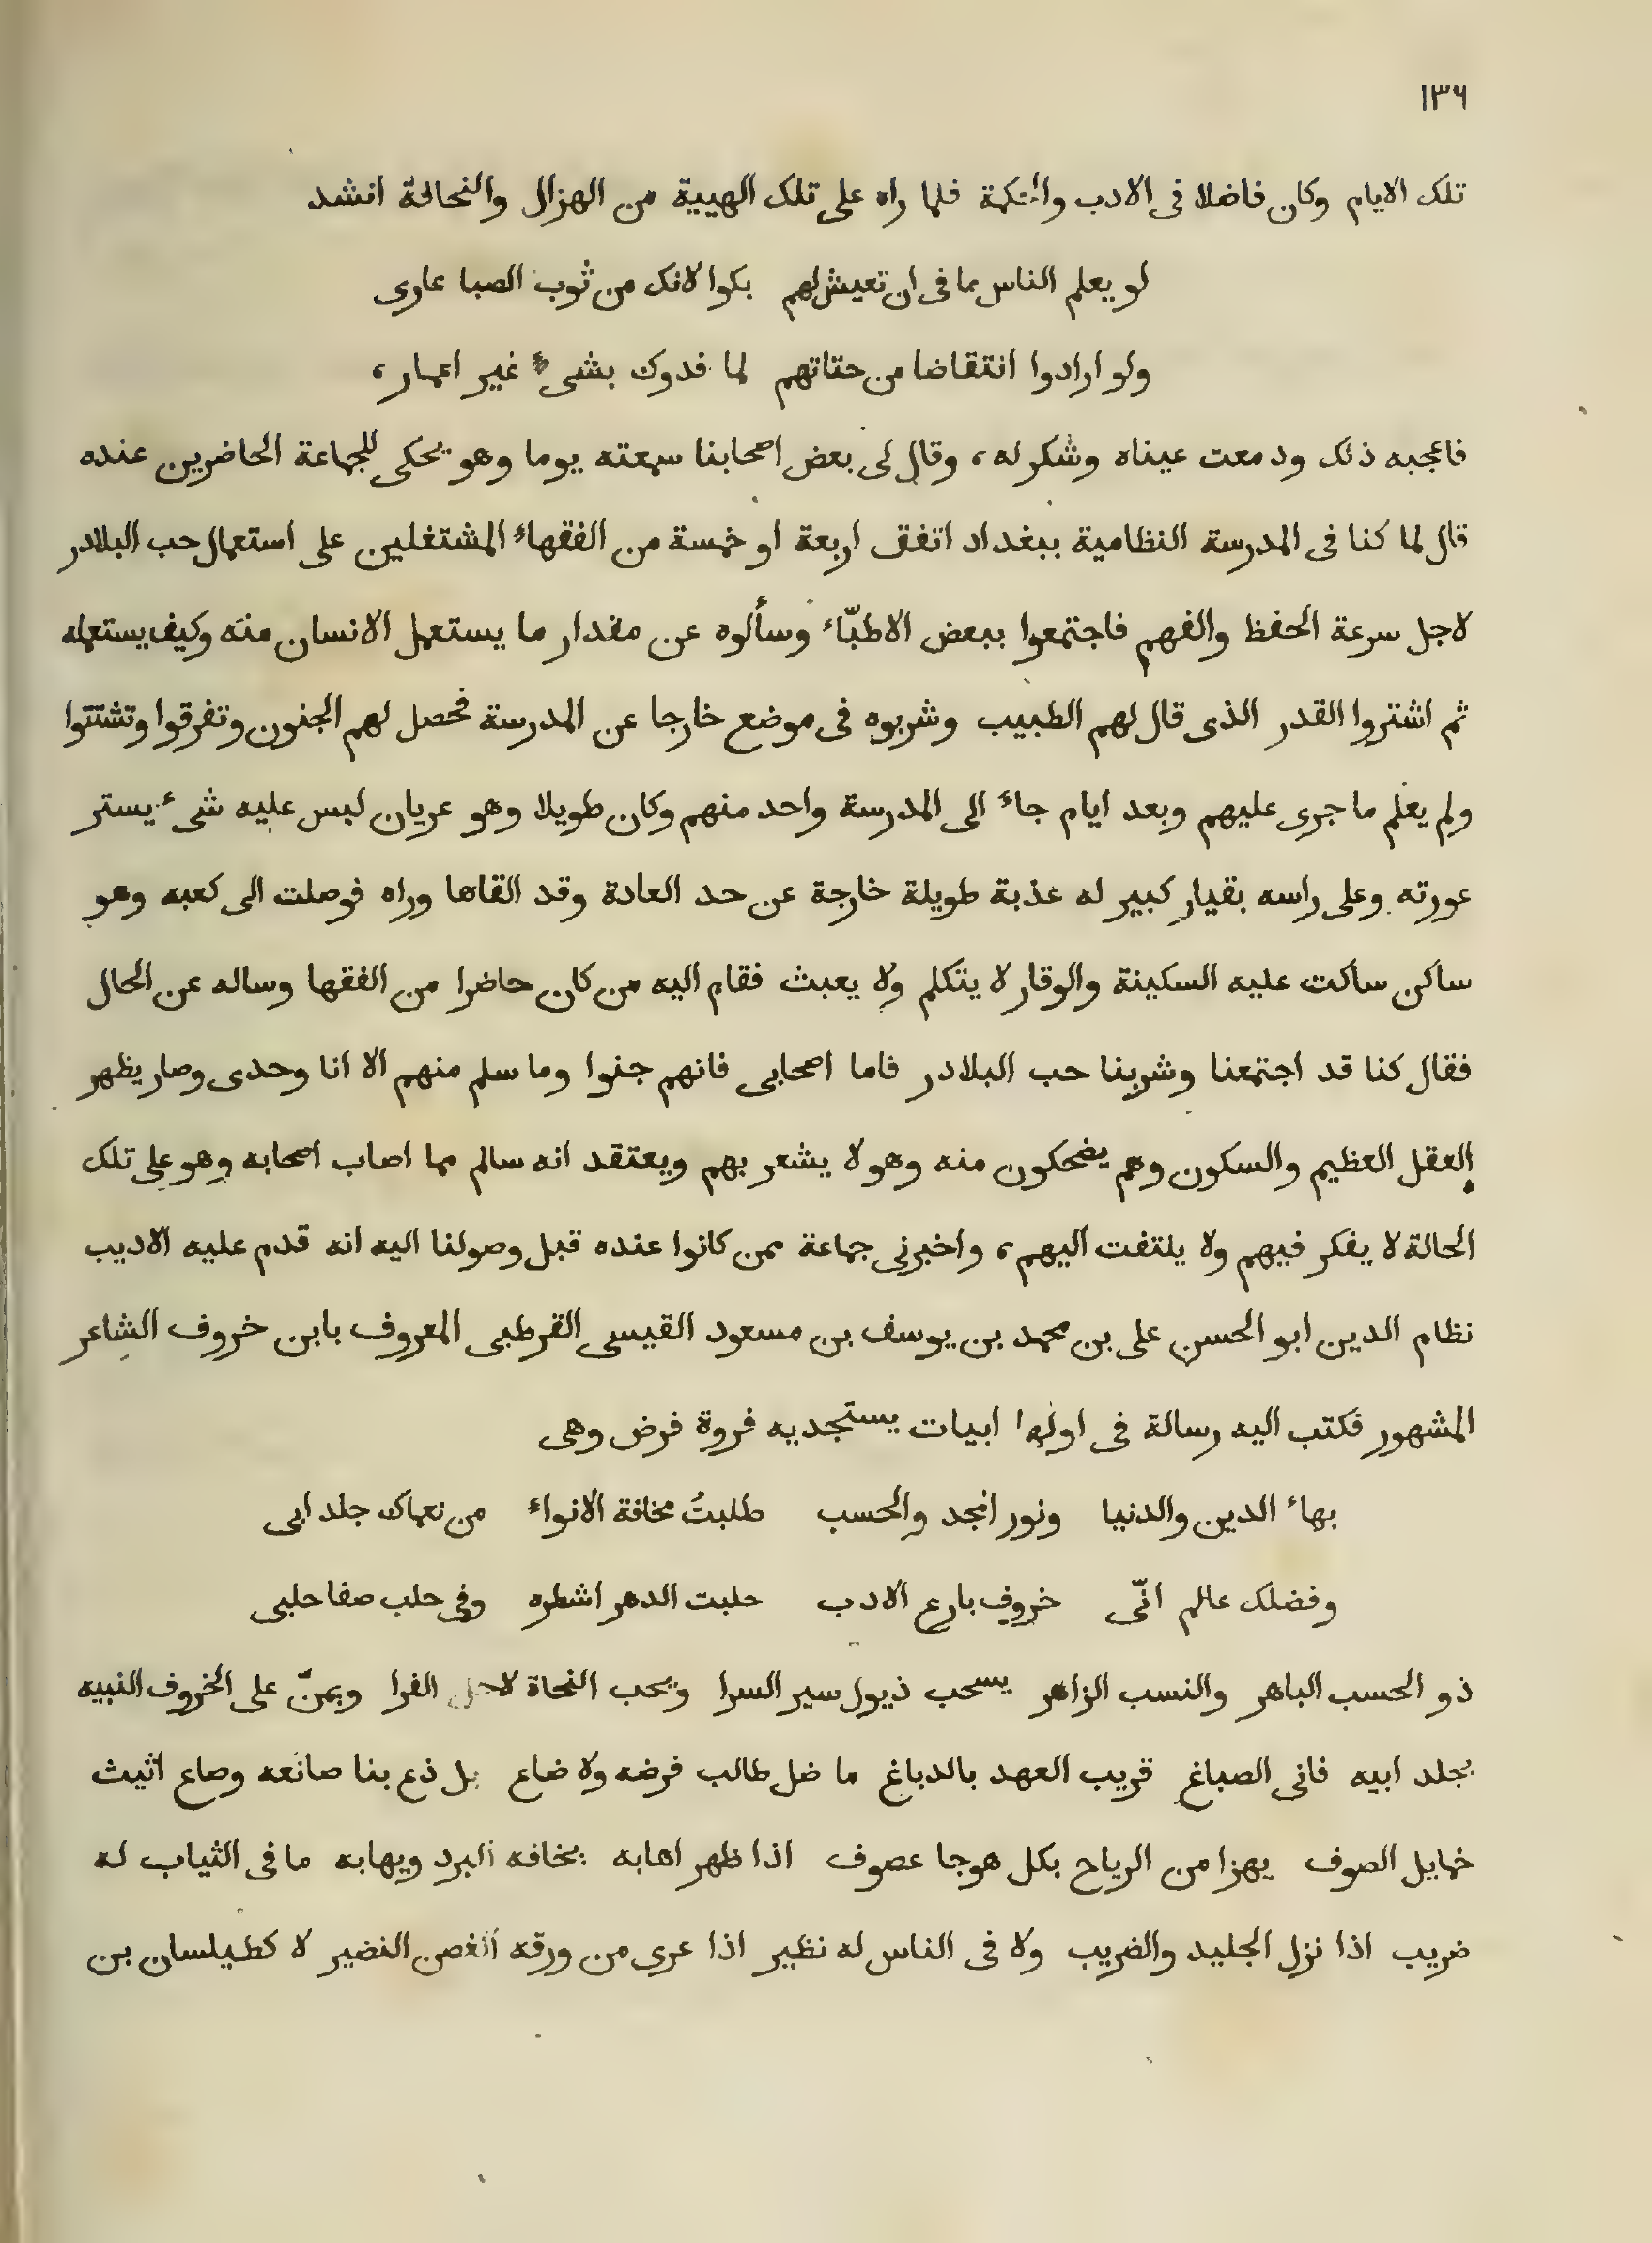 ١٣٦
تلك الايام وكان فاضلا فى الادب والحكمة فلما راه على تلك الهيية من الهزال والنحافة انشد
لو يعلم الناس ما فى ان تعيش لهم بكوا لانك من ثوب الصبا عارى
ولو ارادوا انتقاضا من حتاتهم لما فدوك بشىء غير اعمار،
فاعجبه ذلك ودمعت عيناه وشكر له، وقال لى بعض اصحابنا سمعته يوما وهو يحكى للجماعة الحاضرين عنده
قال لما كنا فى المدرسة النظامية ببغداد اتفق اربعة او خمسة من الفقهاء المشتغلين على استعمال حب البلادر
لاجل سرعة الحفظ والفهم فاجتمعوا ببعض الاطبّاء وسألوه عن مقدار ما يستعمل الانسان منه وكيف يستعمله
ثم اشتروا القدر الذى قال لهم الطبيب وشربوه فى موضع خارجا عن المدرسة فحصل لهم الجنون وتفرقوا وتشتتوا
ولم يعلم ما جرى عليهم وبعد ايام جاء الى المدرسة واحد منهم وكان طويلا وهو عريان ليس عليه شىء يستر
عورته وعلى راسه بقيار كبير له عذبة طويلة خارجة عن حد العادة وقد القاها وراه فوصلت الى كعبه وهو
ساكن ساكت عليه السكينة والوقار لا يتكلم ولا يعبث فقام اليه من كان حاضرا من الفقها وساله عن الحال
فقال كنا قد اجتمعنا وشربنا حب البلادر فاما اصحابى فانهم جنوا وما سلم منهم الا انا وحدى وصار يظهر
العقل العظيم والسكون وهم يضحكون منه وهو لا يشعر بهم ويعتقد انه سالم مما اصاب اصحابه وهو على تلك
الحالة لا يفكر فيهم ولا يلتفت اليهم، واخبرنى جماعة ممن كانوا عنده قبل وصولنا اليه انه قدم عليه الاديب
نظام الدين ابو الحسن على بن محمد بن يوسف بن مسعود القيسى القرطبى المعروف بابن خروف الشاعر
المشهور فكتب اليه رسالة فى اولها ابيات يستجديه فروة قرض وهى
بهاء الدين والدنيا ونور المجد والحسب طلبتُ مخافة الانواء من نعماك جلد ابى
وفضلك عالم انّى خروف بارع الادب حلبت الدهر اشطره وفى حلب صفا حلبى
ذو الحسب الباهر والنسب الزاهر يسحب ذيول سير السرا ويحب النحاة لاجل الفرا ويمنّ على الخروف النبيه
بجلد ابيه قانى الصباغ قريب العهد بالدباغ ما ضل طالب قرضه ولا ضاع بل ذع بنا صانعه وضاع اثيث
خمايل الصوف يهزا من الرياح بكل هوجا عصوف اذا ظهر اهابه يخافه البرد ويهابه ما فى الثياب له
ضريب اذا نزل الجليد والضريب ولا فى الناس له نظير اذا عرى من ورقه الغصن النضير لا كطيلسان بن